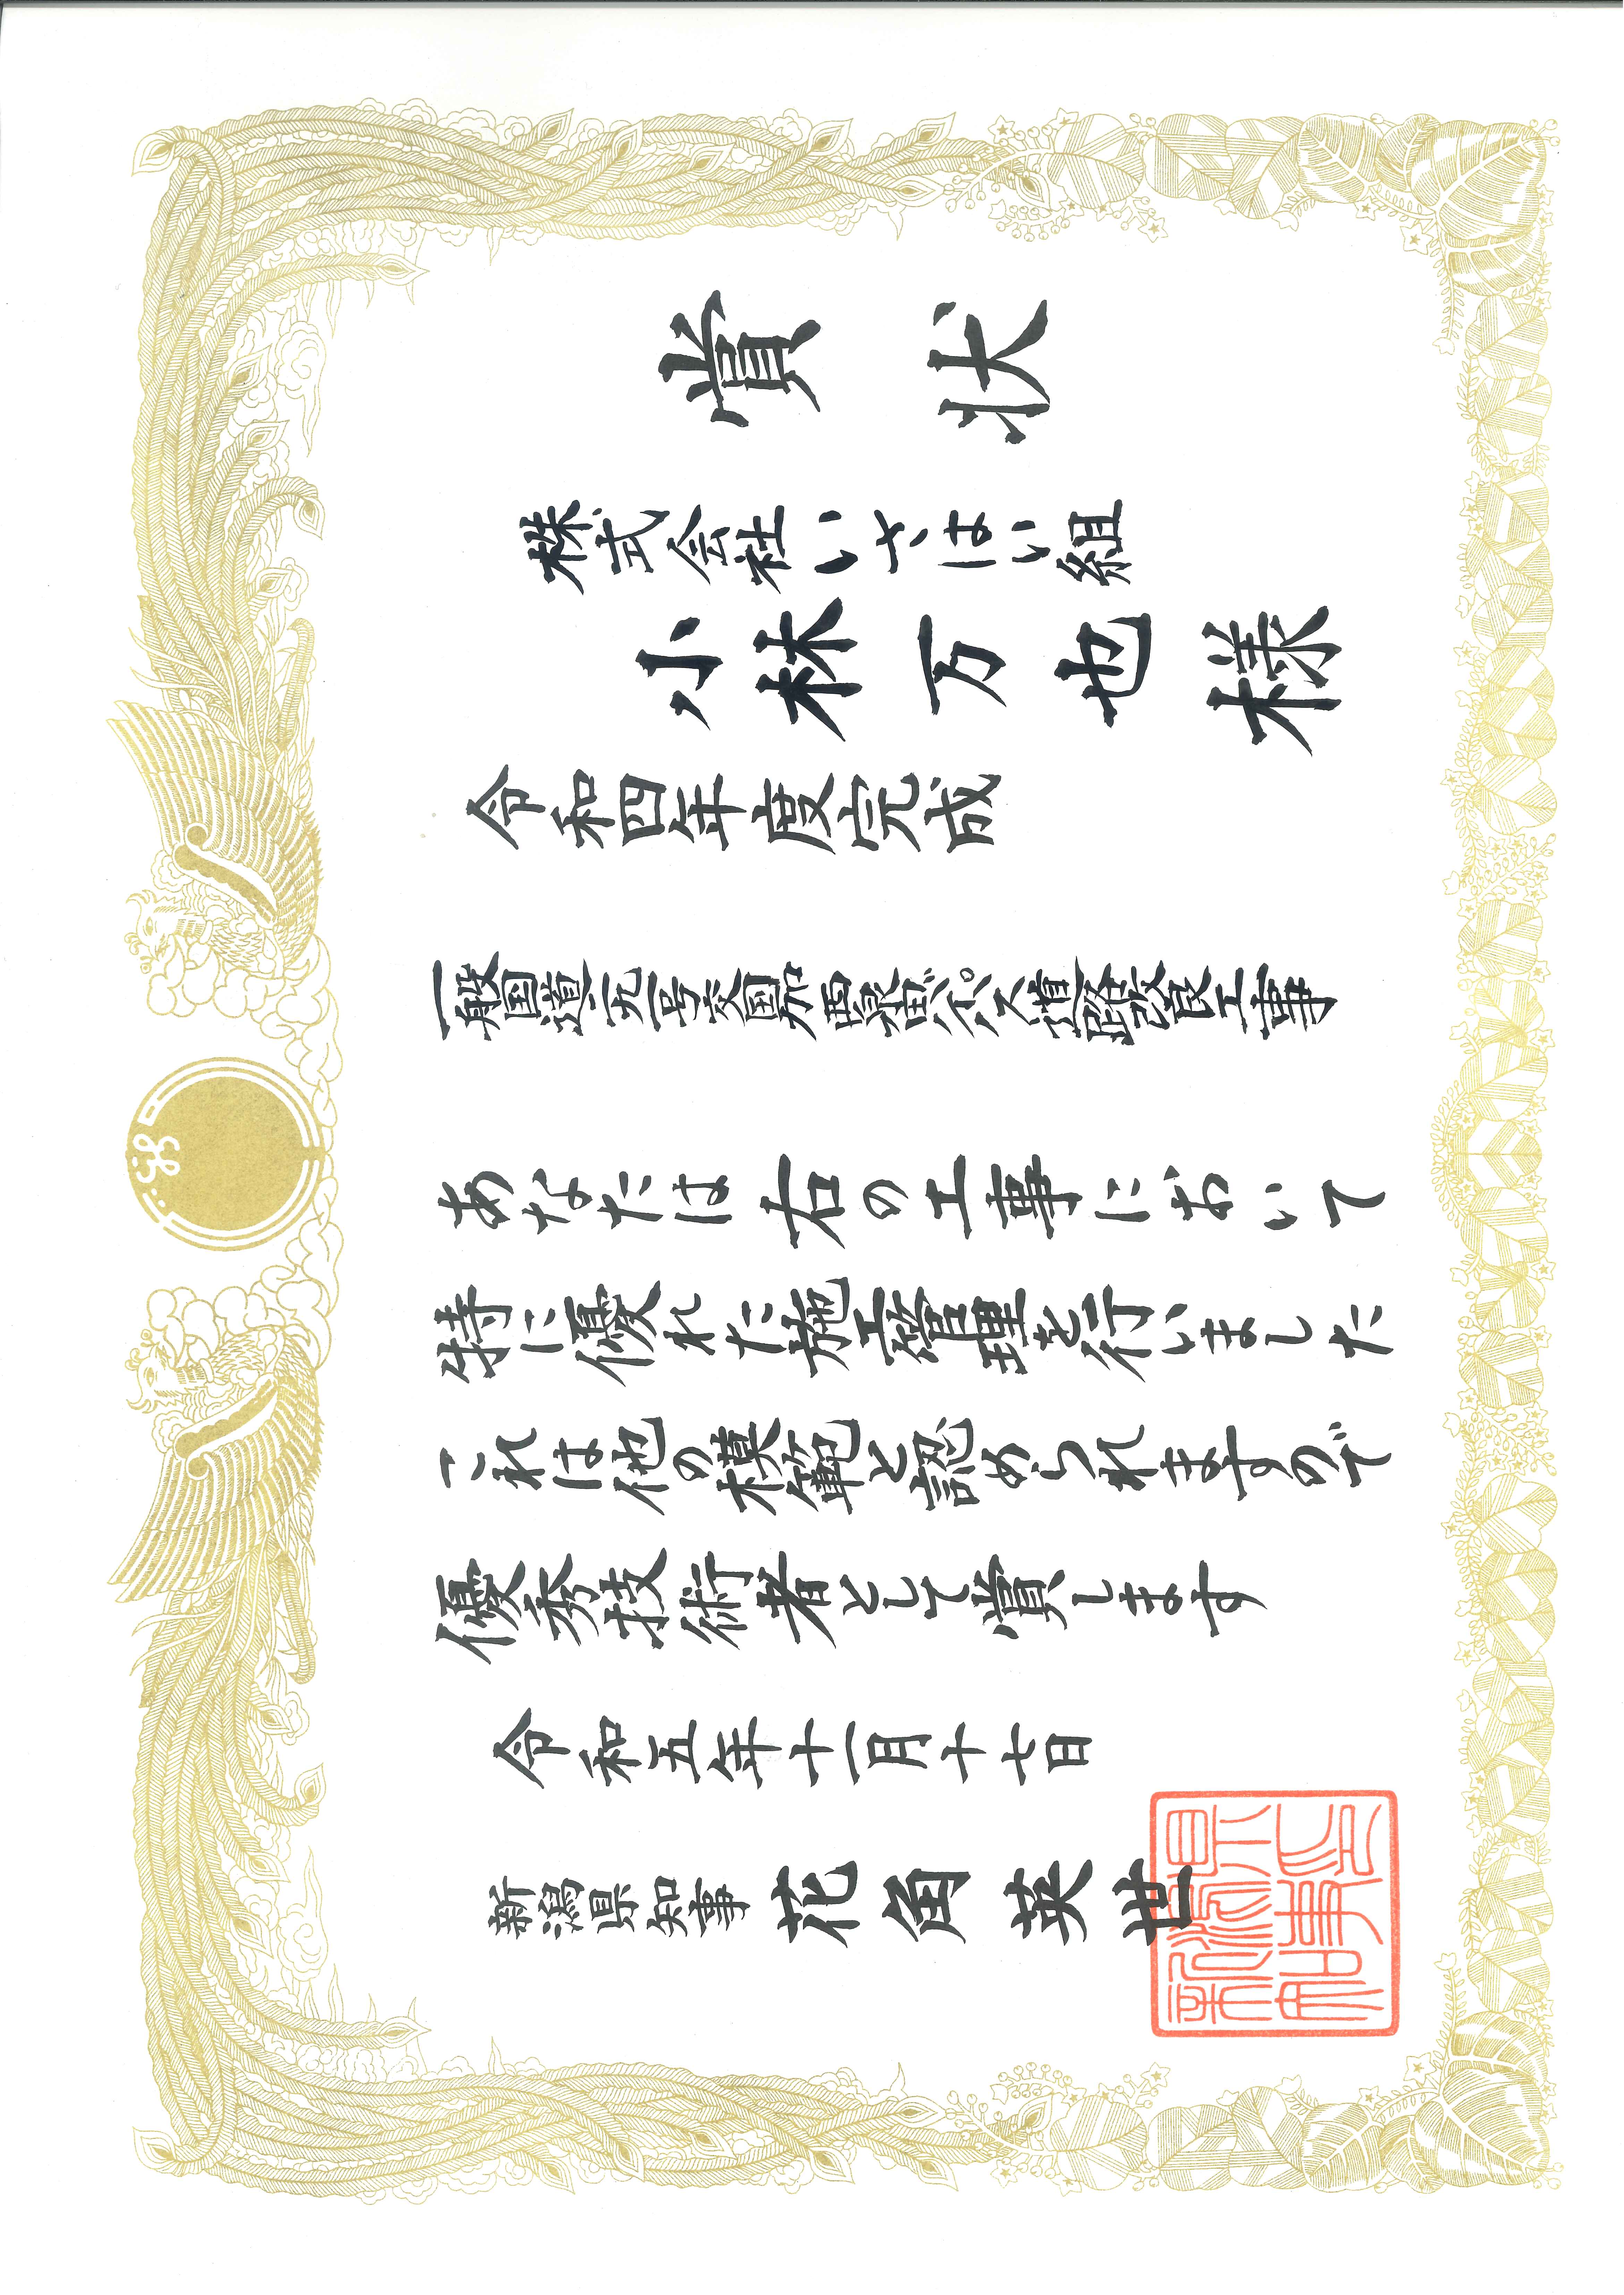 賞状
株式会社いさはい組
小林万也様
令和四年度完成
一般国道 バイパス道路改良工事
あなたは右の工事において
特に優れた施工管理を行いました
これは他の模範と認められますので
優秀技術者として賞します
令和五年十一月十七日
新潟県知事 花角英世